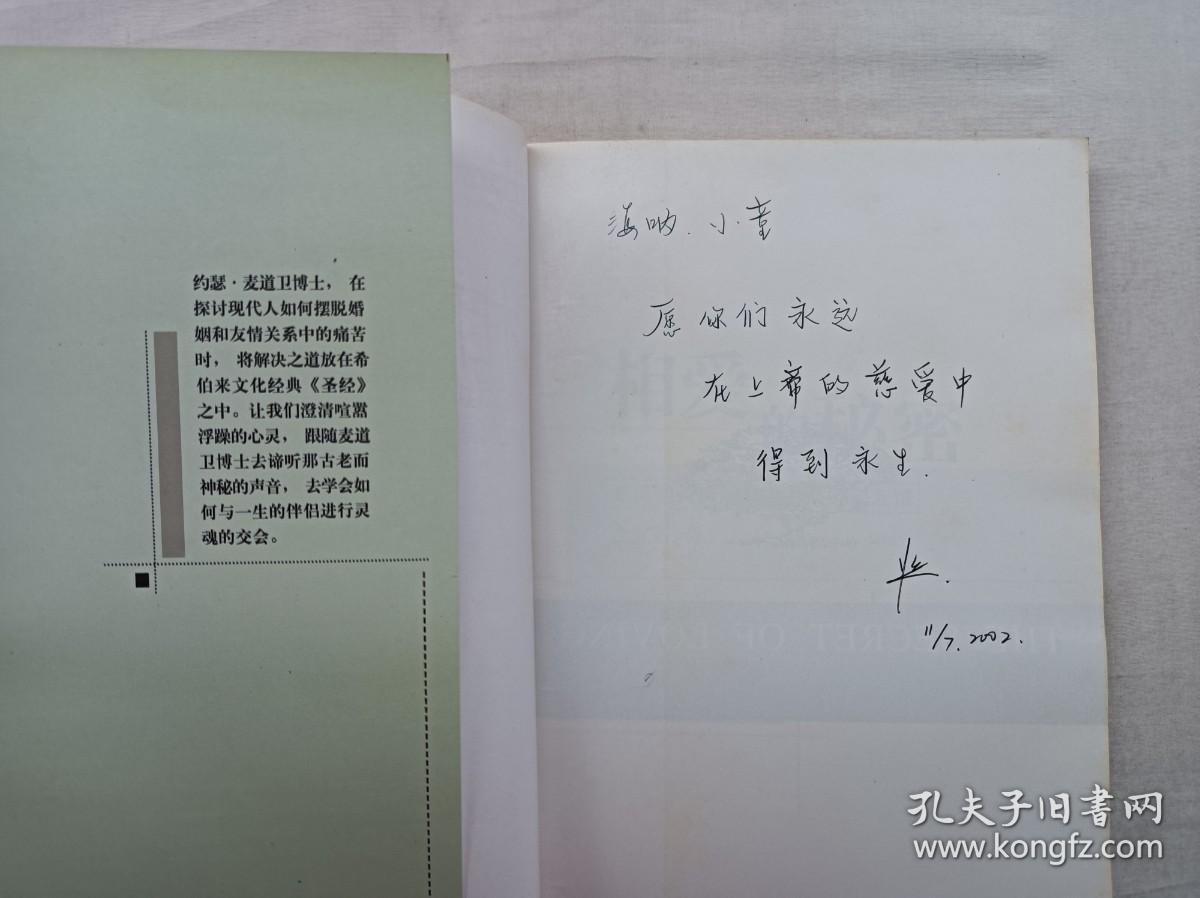 约瑟·麦道卫博士，在
探讨现代人如何摆脱婚
姻和友情关系中的痛苦
时，将解决之道放在希
伯来文化经典《圣经》
之中。让我们澄清喧嚣
浮躁的心灵，跟随麦道
卫博士去谛听那古老而
神秘的声音，去学会如
何与一生的伴侣进行灵
魂的交会。
海呐.小童
愿你们永远
在上帝的慈爱中
得到永生.
11/7.2002.
相爱
的秘密
THE SECRET OF LOVIN
孔夫子旧书网
www.kongfz.com